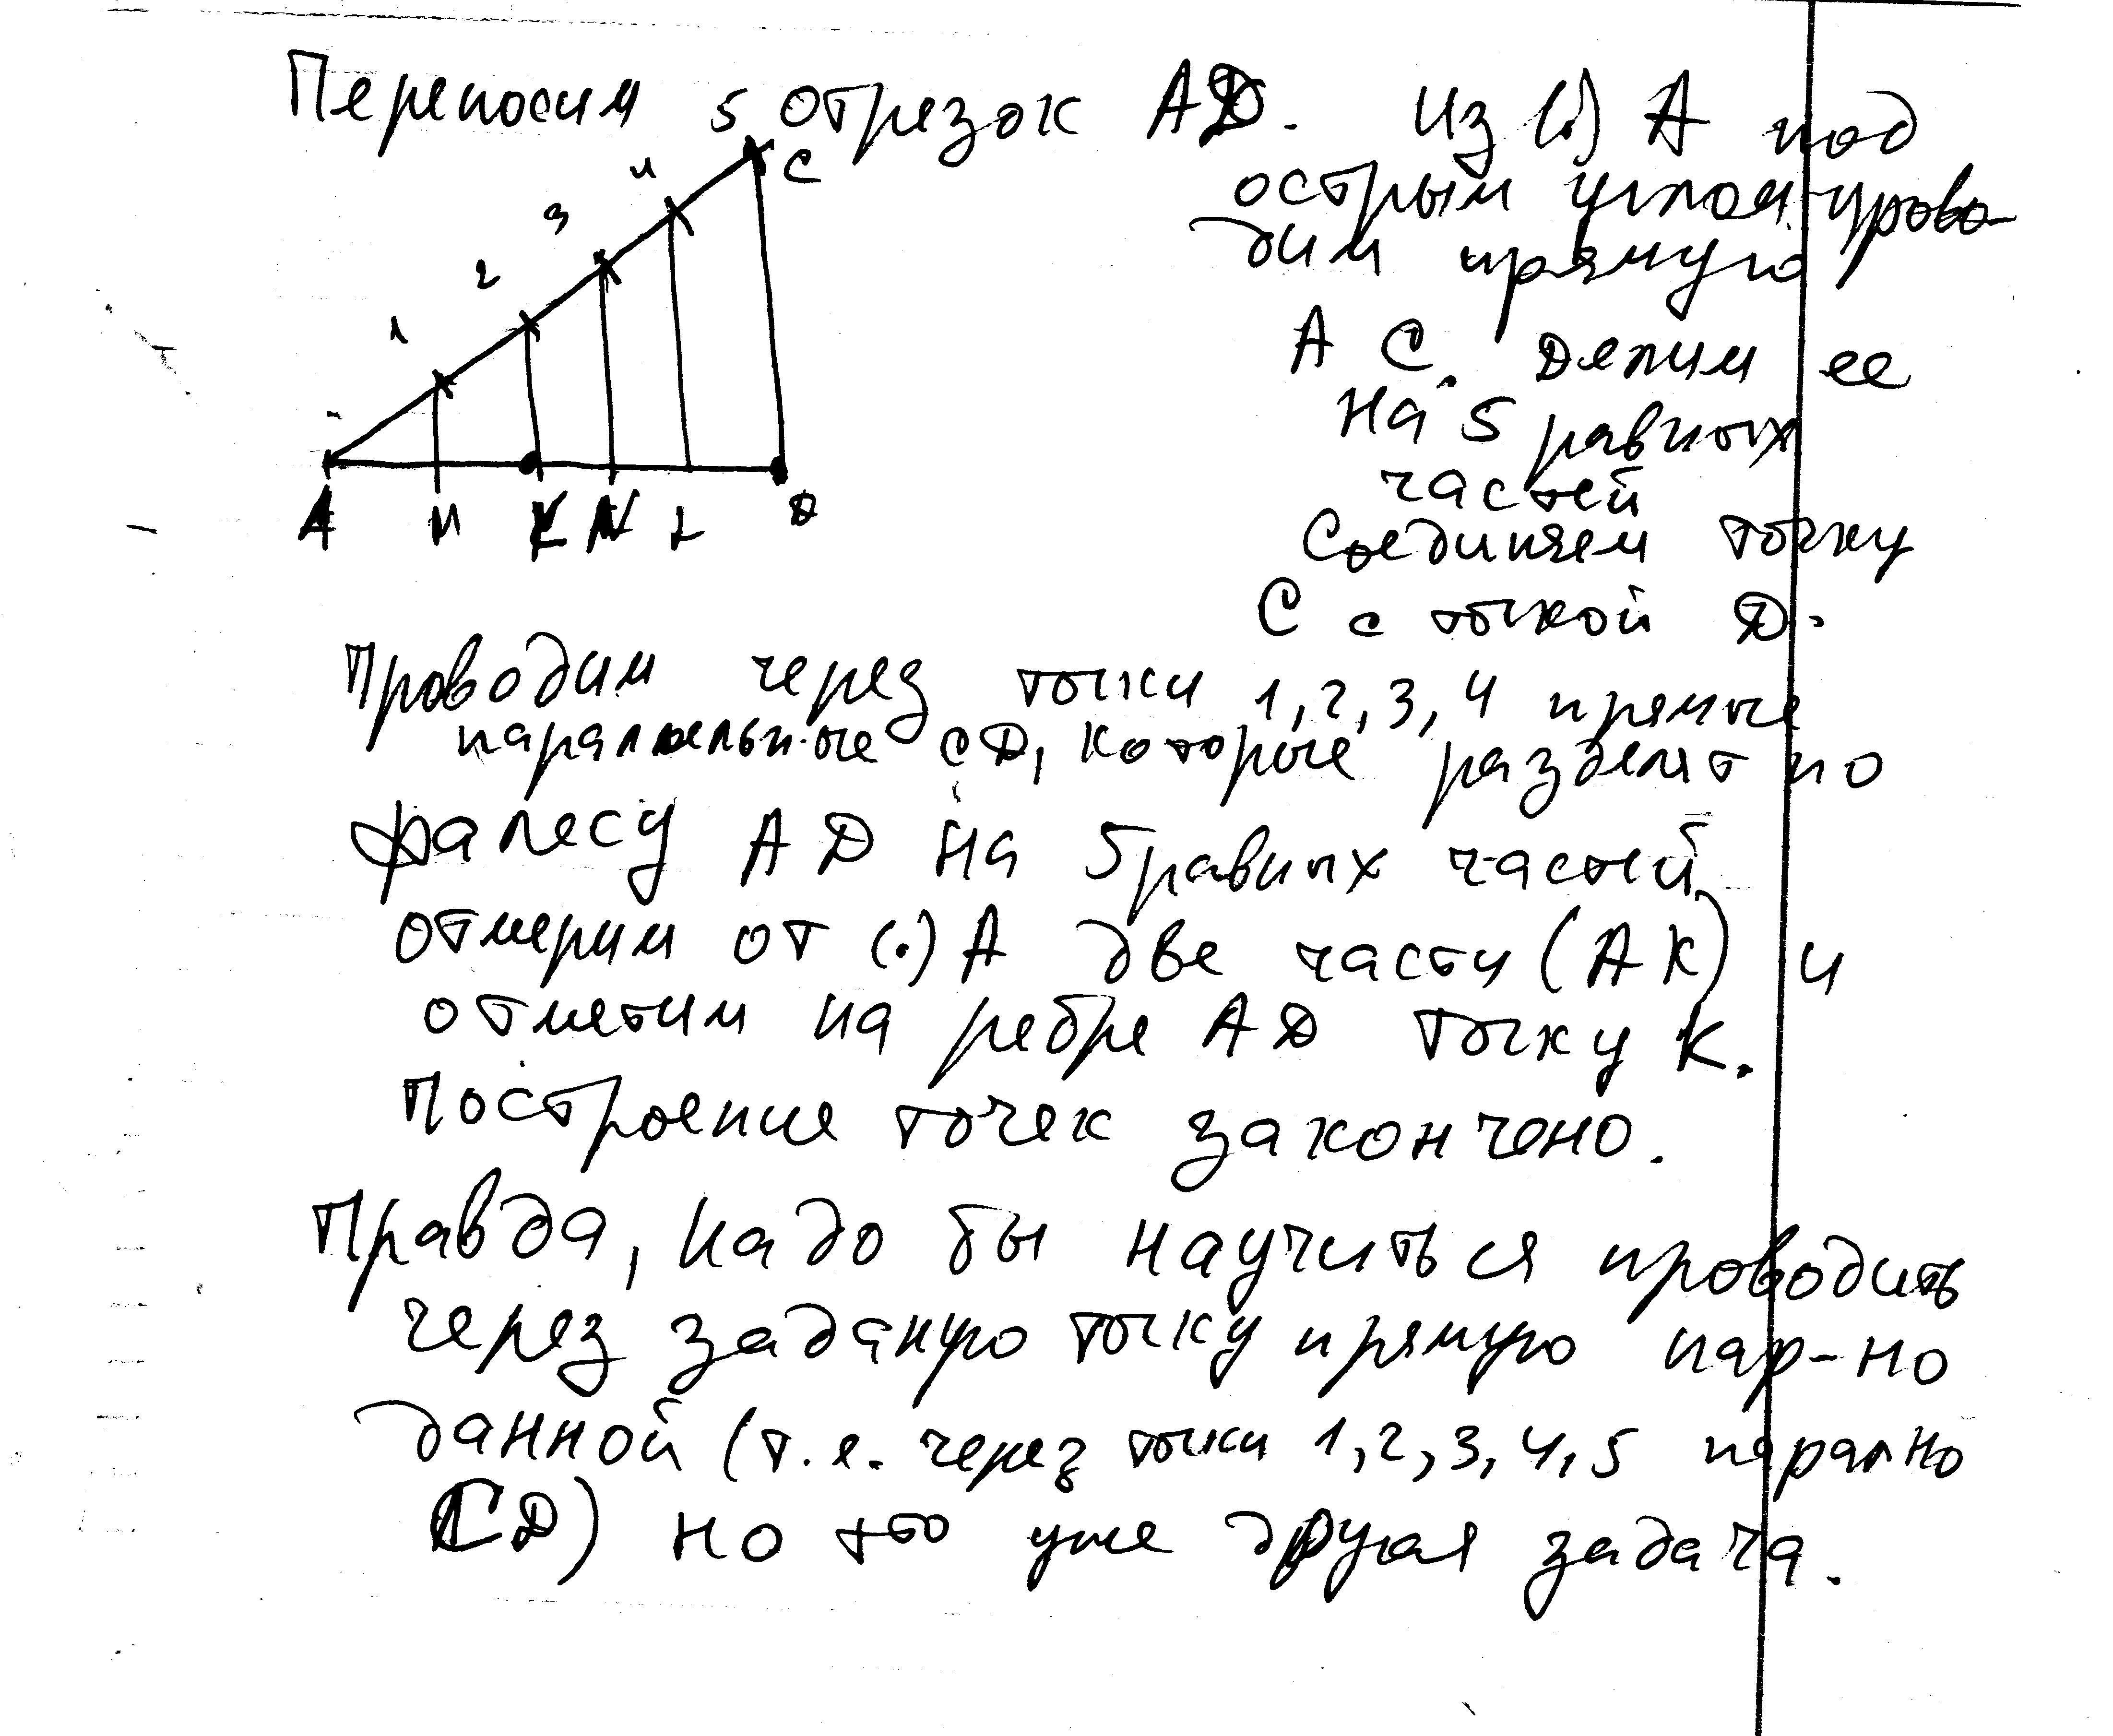 Переносим отрезок АД. Из (.) А под
острым углом прово-
дим прямую
А С. Делим ее
на 5 равных
частей
Соединяем точку
С с точкой Д.
5
С
4
3
2
1
А М К N L Д
Проводим через точки 1, 2, 3, 4 прямые
параллельные СД, которые разделят по
фалесу АД на 5 равных частей
отмерим от (.) А две части (АК) и
отметим на ребре АД точку К.
Построение точек закончено.
Правда, надо бы научиться проводить
через заданую точку прямую пар-но
данной (т.е. через точки 1, 2, 3, 4, 5 парално
СД) но это уже другая задача.